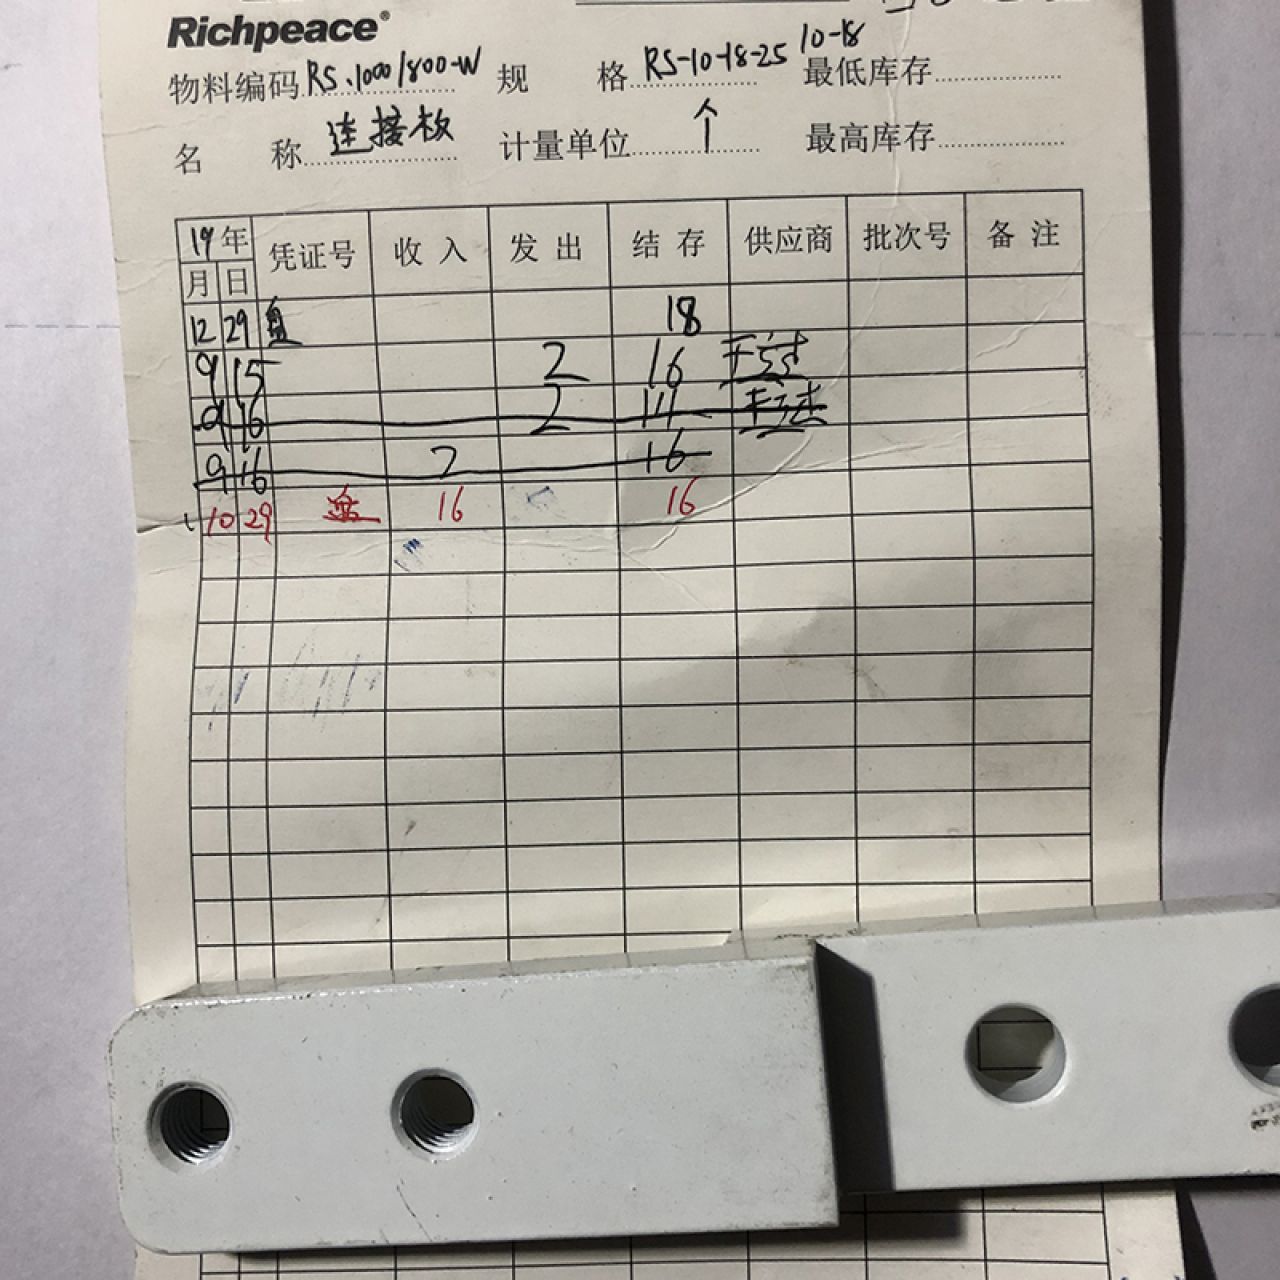 Richpeace®
物料编码 RS.1000/800-W 规 格 RS-10-18-25 10-18 最低库存
名 称 连接板 计量单位 个 最高库存
19年 凭证号 收入 发出 结存 供应商 批次号 备注
月 日
12 29 盘 18
9 15 2 16
9 16 2 14
9 16 2 16
10 29 盘 16 16